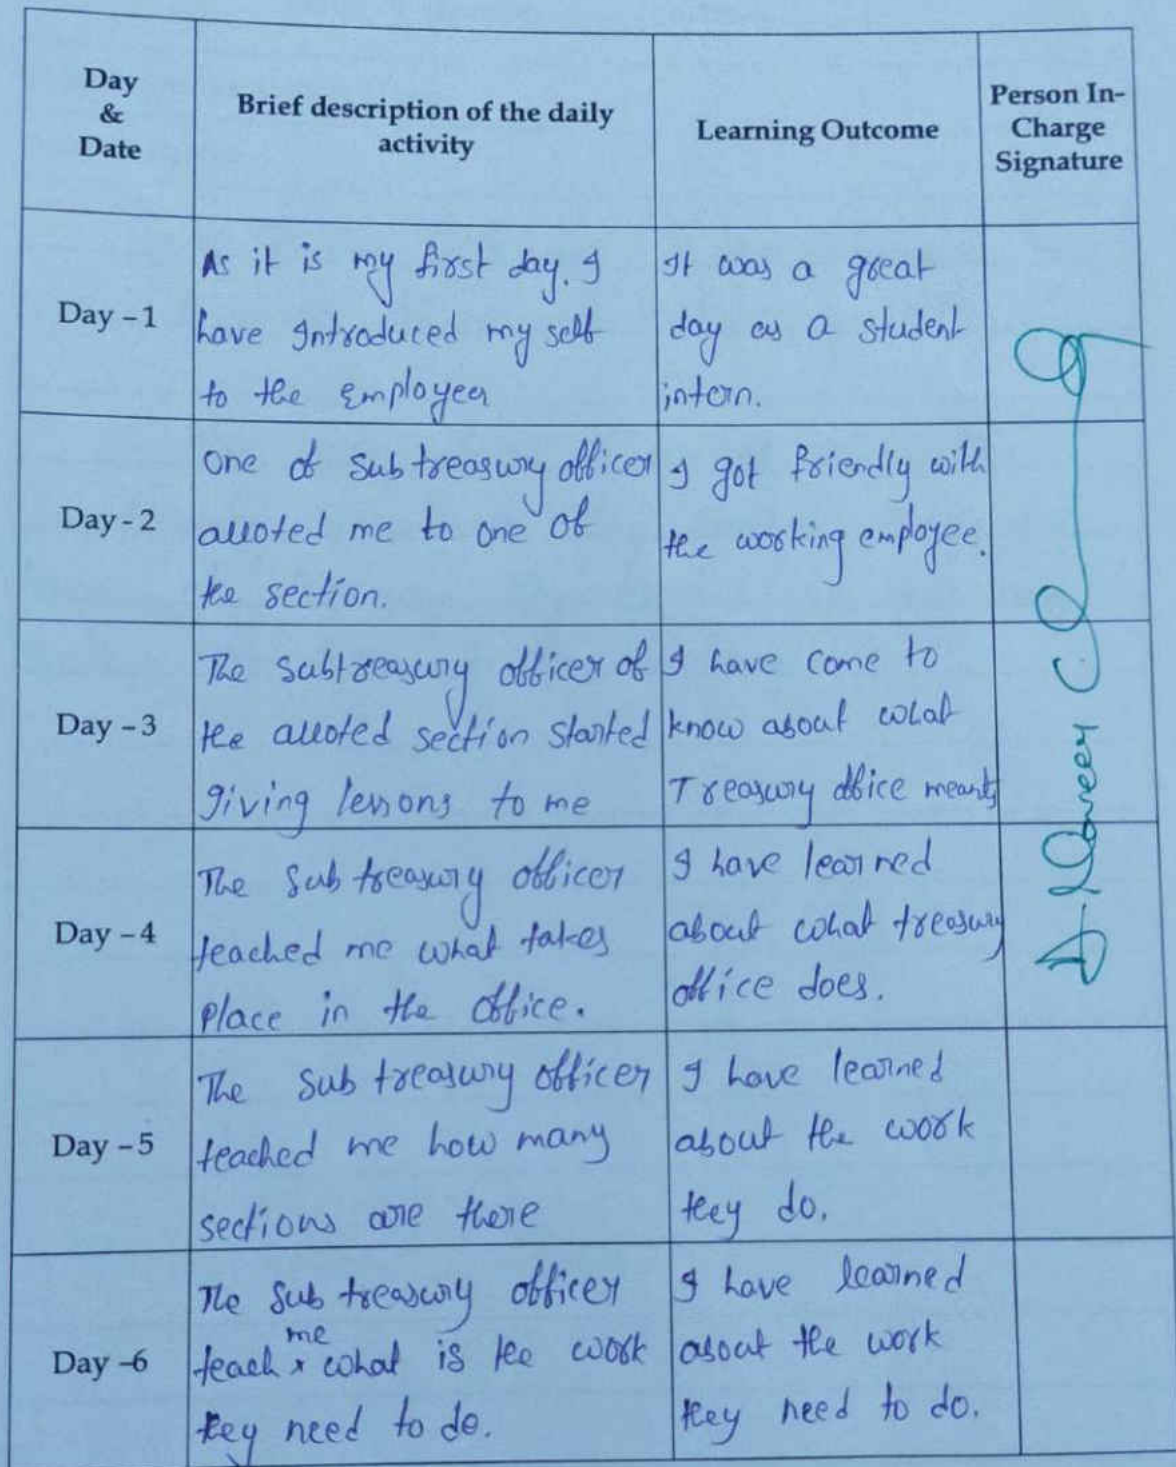 Day
&
Date
Brief description of the daily
activity
Learning Outcome
Person In-
Charge
Signature
Day – 1
As it is my first day. I
have Introduced my self
to the Employee
It was a great
day as a student
intern.
Day - 2
One of Sub treasury officer
alloted me to one of
the section.
I got friendly with
the working employee.
Day – 3
The Subtreasury officer of
the alloted section started
giving lessons to me
I have come to
know about what
Treasury office meants
Day – 4
The Sub treasury officer
teached me what takes
place in the office.
I have learned
about what treasury
office does.
Day – 5
The Sub treasury officer
teached me how many
sections are there
I have learned
about the work
they do.
Day –6
The Sub treasury officer
me
teach x what is the work
they need to do.
I have learned
about the work
they need to do.